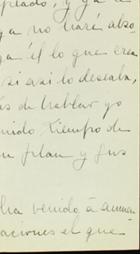 ptado, y ya a
ya no hará abso
ga él lo que crea
si asi lo deseaba,
ás de hablar yo
nido tiempo de
un plan y sus
ha venido á anun
aciones el que